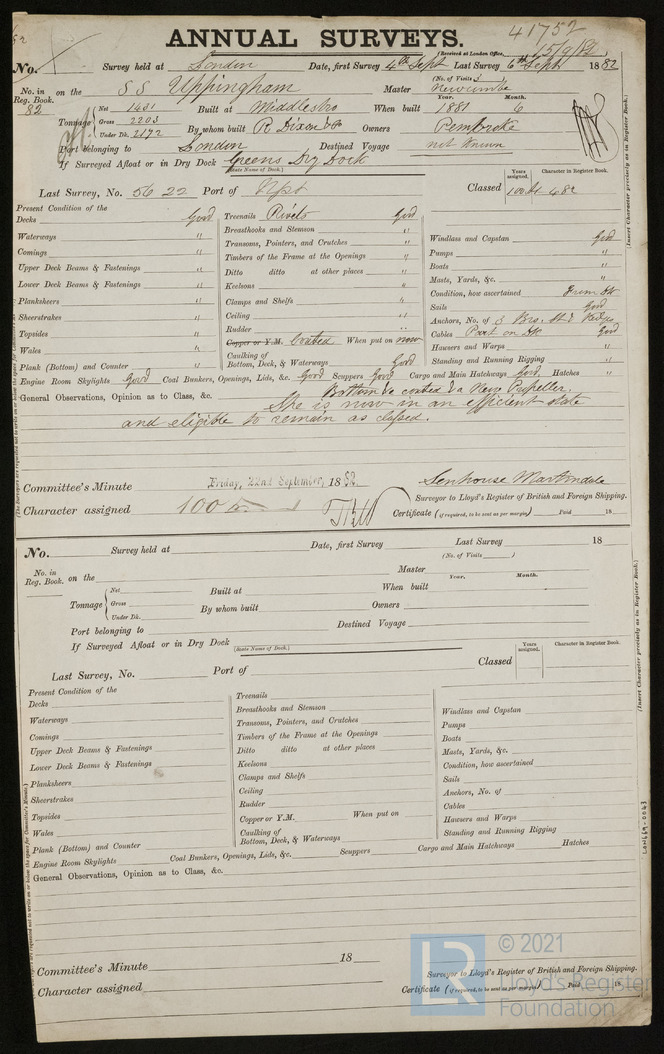 ANNUAL SURVEYS.
41752
(Received at London Office, 15/9/82)
No. Survey held at London Date, first Survey 4th Sept Last Survey 6th Sept 1882
(No. of Visits 3)
No. in Reg. Book. 82 on the SS Uppingham Master Newcombe
Tonnage Net 1431 Built at Middlesbro When built Year. 1881 Month. 6
Gross 2203
Under Dk. 2172 By whom built R Dixon & Co Owners Pembroke
Port belonging to London Destined Voyage not known
If Surveyed Afloat or in Dry Dock Greens Dry Dock
(State Name of Dock.)
Last Survey, No. 5622 Port of Npt Classed Years assigned. 100A Character in Register Book. 4 82
(Insert Character precisely as in Register Book.)
Present Condition of the
Decks Good
Waterways "
Comings "
Upper Deck Beams & Fastenings "
Lower Deck Beams & Fastenings "
Planksheers "
Sheerstrakes "
Topsides "
Wales "
Plank (Bottom) and Counter "
Treenails Rivets Good
Breasthooks and Stemson "
Transoms, Pointers, and Crutches "
Timbers of the Frame at the Openings "
Ditto ditto at other places "
Keelsons "
Clamps and Shelfs "
Ceiling "
Rudder "
Copper or Y.M. Coated When put on now
Caulking of Bottom, Deck, & Waterways Good
Windlass and Capstan Good
Pumps "
Boats "
Masts, Yards, &c. "
Condition, how ascertained From Dk
Sails Good
Anchors, No. of 3 Brs. St & Kedges
Cables Part on Dk Good
Hawsers and Warps "
Standing and Running Rigging "
Engine Room Skylights Good Coal Bunkers, Openings, Lids, &c. Good Scuppers Good Cargo and Main Hatchways Good Hatches "
General Observations, Opinion as to Class, &c. Bottom re coated & a New Propeller.
She is now in an efficient state
and eligible to remain as classed.
Committee's Minute Friday, 22nd September, 1882
Senhouse Martindale
Surveyor to Lloyd's Register of British and Foreign Shipping.
Character assigned 100 A
Certificate (if required, to be sent as per margin) Paid 18
No. Survey held at Date, first Survey Last Survey 18
(No. of Visits )
No. in Reg. Book. on the Master
Tonnage Net Built at When built Year. Month.
Gross
Under Dk. By whom built Owners
Port belonging to Destined Voyage
If Surveyed Afloat or in Dry Dock
(State Name of Dock.)
Last Survey, No. Port of Classed Years assigned. Character in Register Book.
(Insert Character precisely as in Register Book.)
Present Condition of the
Decks
Waterways
Comings
Upper Deck Beams & Fastenings
Lower Deck Beams & Fastenings
Planksheers
Sheerstrakes
Topsides
Wales
Plank (Bottom) and Counter
Treenails
Breasthooks and Stemson
Transoms, Pointers, and Crutches
Timbers of the Frame at the Openings
Ditto ditto at other places
Keelsons
Clamps and Shelfs
Ceiling
Rudder
Copper or Y.M. When put on
Caulking of Bottom, Deck, & Waterways
Windlass and Capstan
Pumps
Boats
Masts, Yards, &c.
Condition, how ascertained
Sails
Anchors, No. of
Cables
Hawsers and Warps
Standing and Running Rigging
Engine Room Skylights Coal Bunkers, Openings, Lids, &c. Scuppers Cargo and Main Hatchways Hatches
General Observations, Opinion as to Class, &c.
LON669-0043
Committee's Minute 18
Surveyor to Lloyd's Register of British and Foreign Shipping.
Character assigned
Certificate (if required, to be sent as per margin) Paid 18
LR © 2021
Lloyd's Register
Foundation